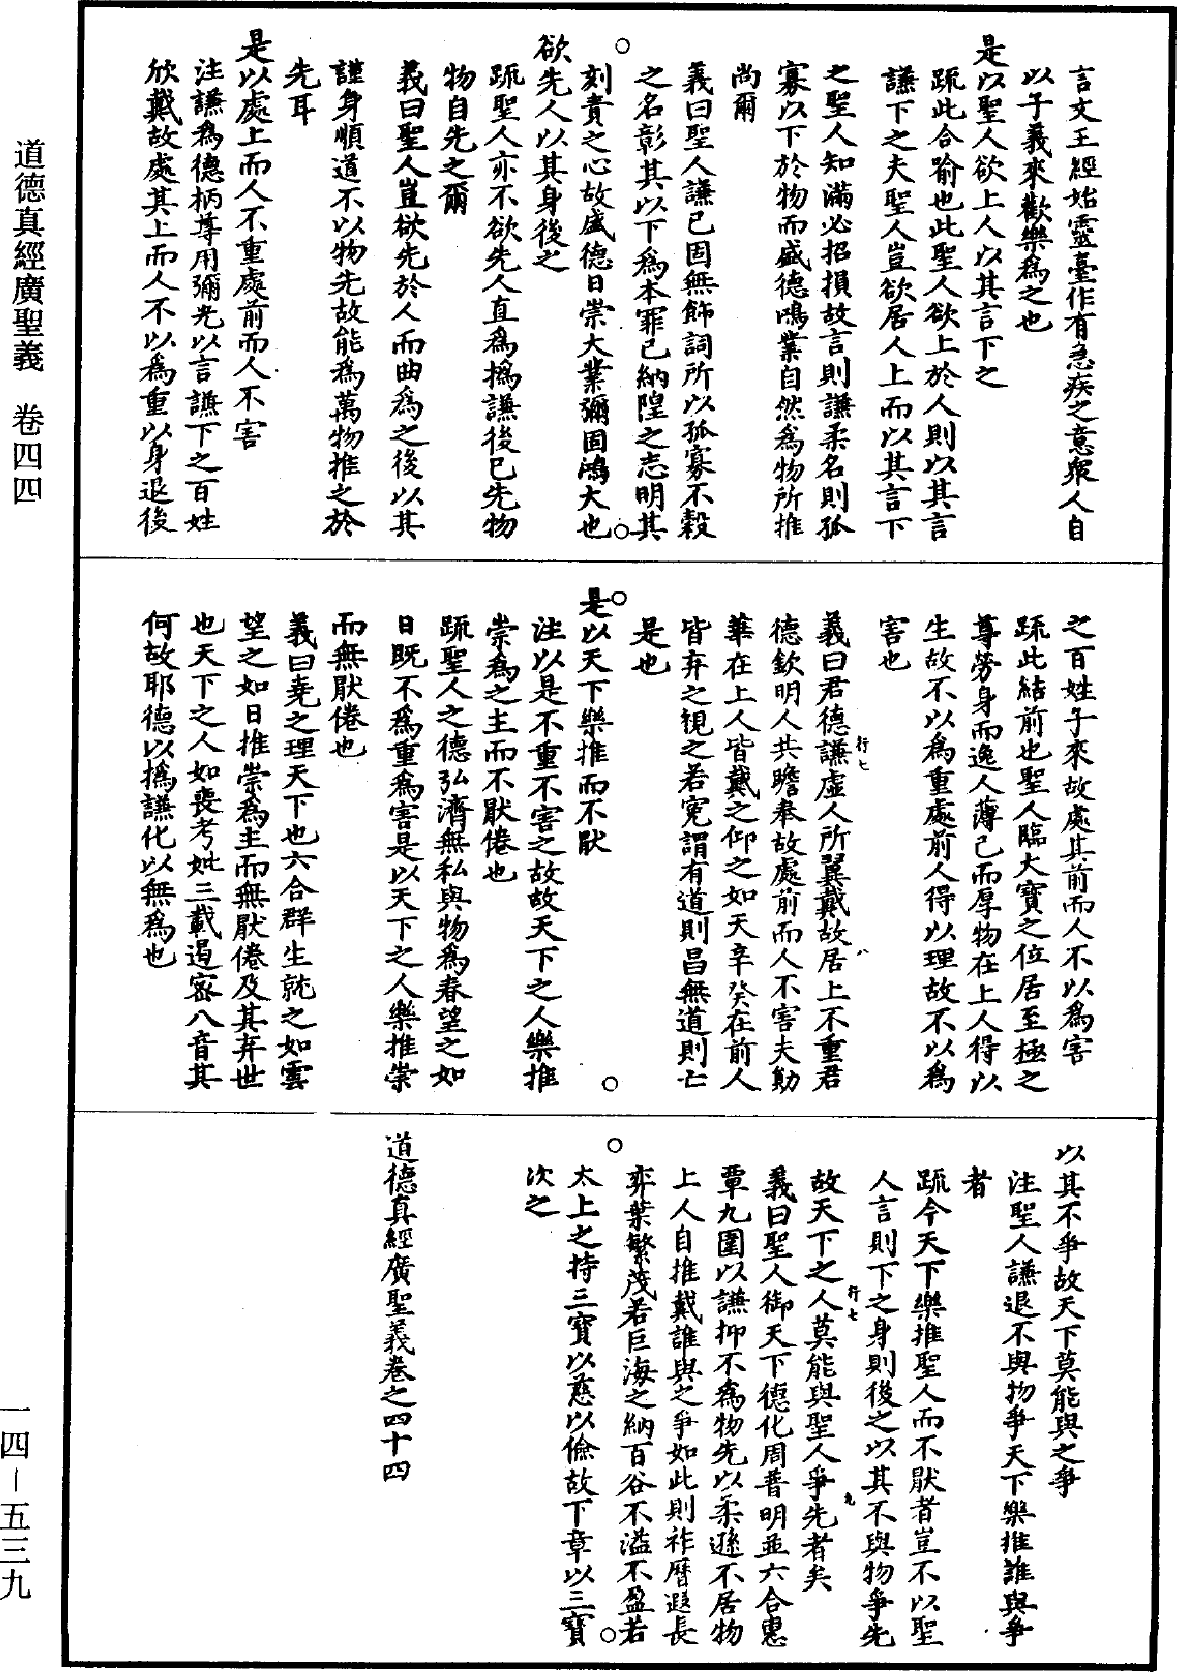 道德真經廣聖義　卷四四
一四－五三九
言文王經始靈臺作有急疾之意衆人自
以子義來歡樂爲之也
是以聖人欲上人以其言下之
疏此合喻也此聖人欲上於人則以其言
謙下之夫聖人豈欲居人上而以其言下
之聖人知滿必招損故言則謙柔名則孤
寡以下於物而盛德鴻業自然爲物所推
尚爾
義曰聖人謙已固無飾詞所以孤寡不穀
之名彰其以下爲本罪已納隍之志明其
刻責之心故盛德日崇大業彌固鴻大也
欲先人以其身後之
疏聖人亦不欲先人直爲撝謙後已先物
物自先之爾
義曰聖人豈欲先於人而曲爲之後以其
謹身順道不以物先故能爲萬物推之於
先耳
是以處上而人不重處前而人不害
注謙爲德柄尊用彌光以言謙下之百姓
欣戴故處其上而人不以爲重以身退後
之百姓子來故處其前而人不以爲害
疏此結前也聖人臨大寶之位居至極之
尊勞身而逸人薄己而厚物在上人得以
生故不以爲重處前人得以理故不以爲
害也
義曰君德謙虛人所翼戴故居上不重君
德欽明人共瞻奉故處前而人不害夫勛
華在上人皆戴之仰之如天辛癸在前人
皆弃之視之若寃謂有道則昌無道則亡
是也
是以天下樂推而不猒
注以是不重不害之故故天下之人樂推
崇爲之主而不猒倦也
疏聖人之德弘濟無私與物爲春望之如
日既不爲重爲害是以天下之人樂推崇
而無猒倦也
義曰堯之理天下也六合群生就之如雲
望之如日推崇爲主而無猒倦及其弃世
也天下之人如喪考妣三載遏密八音其
何故耶德以撝謙化以無爲也
行七
八
以其不爭故天下莫能與之爭
注聖人謙退不與物爭天下樂推誰與爭
者
疏今天下樂推聖人而不猒者豈不以聖
人言則下之身則後之以其不與物爭先
故天下之人莫能與聖人爭先者矣
義曰聖人御天下德化周普明並六合惠
覃九圍以謙抑不爲物先以柔遜不居物
上人自推戴誰與之爭如此則祚曆遐長
弈葉繁茂若巨海之納百谷不溢不盈若
太上之持三寶以慈以儉故下章以三寶
次之
行七
九
道德真經廣聖義卷之四十四